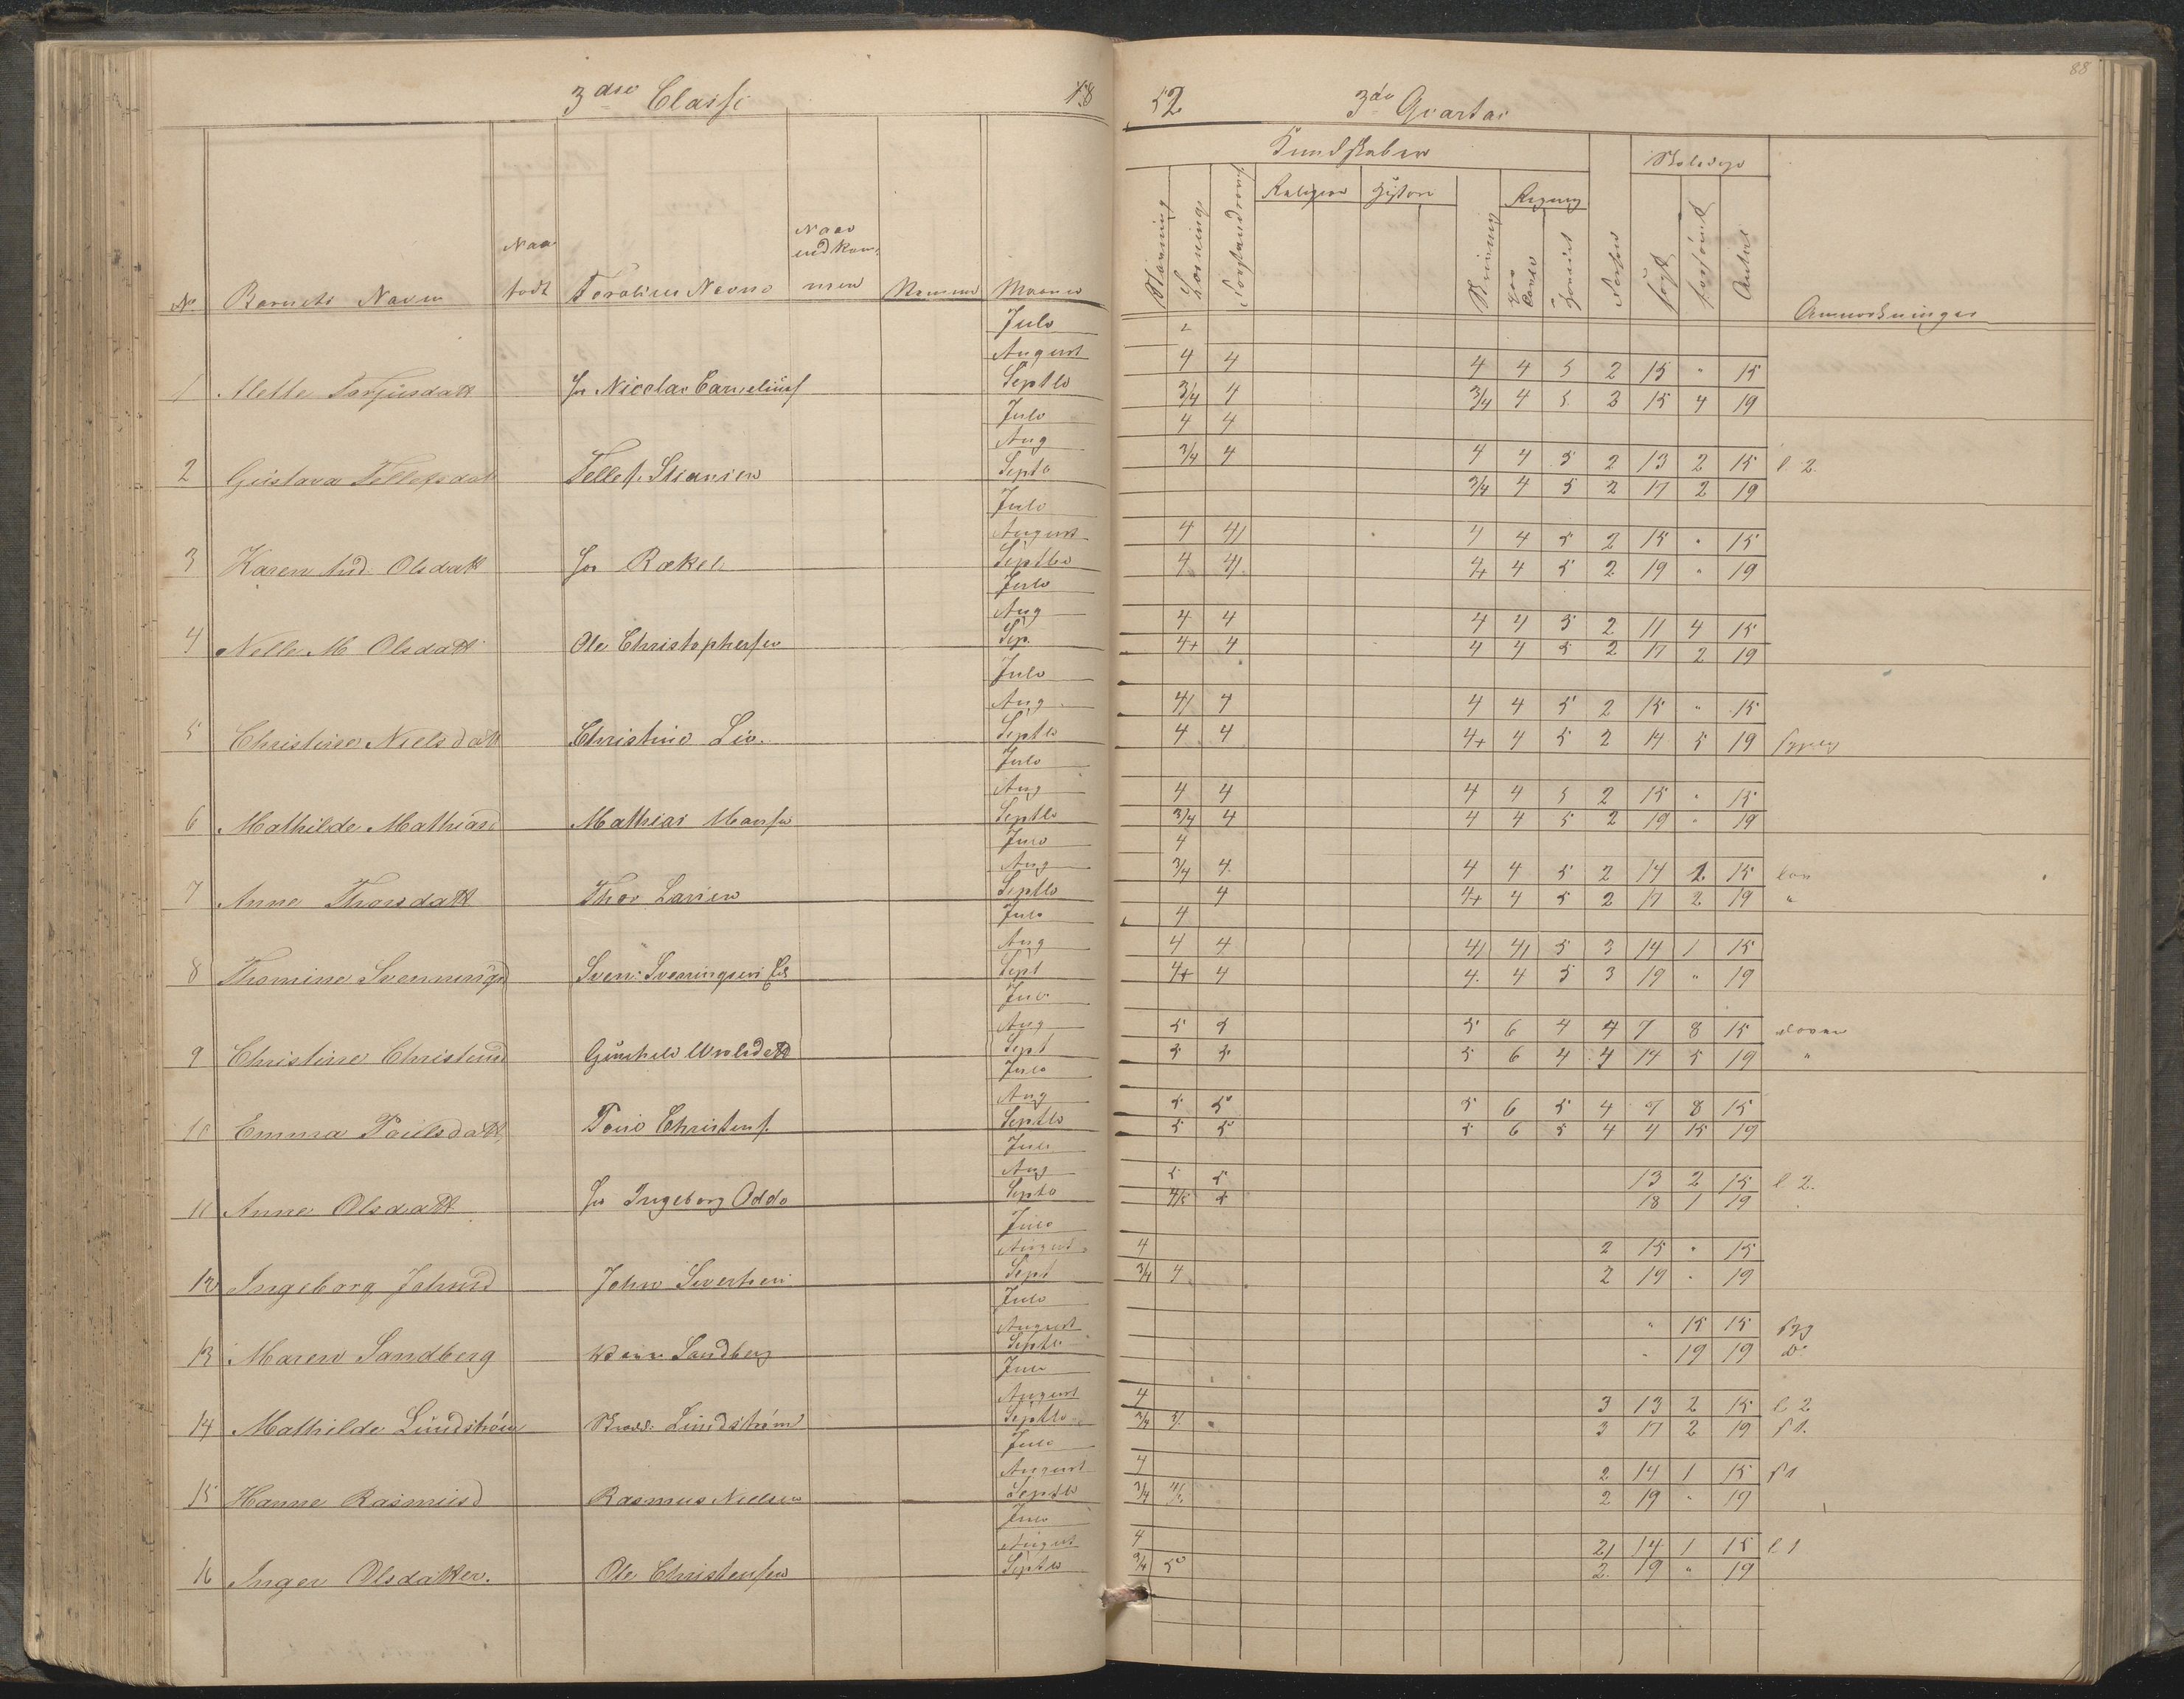 88
3die Classe 18
52 3die Qvartal
Kundskaber
Skoledage
Religion Histori Regning
Stavning Læsning Forstandsøv. Skrivning Orden søgt forsømt Antal
No. Barnets Navn Naar født Forældres Navne Naar indkommen Maaned Anmærkninger
Julo
August 4 4 4 4 5 2 15 " 15
1 Alette Torjusdatt Nicolai Cornelius Septbr 3/4 4 3/4 4 5 2 15 4 19
Julo 4 4
Aug 3/4 4 4 4 5 2 13 2 15 l 2.
2 Gustava Tellefsdatt Tellef Septb 3/4 4 5 2 17 2 19
Julo
August 4 4/ 4 4 5 2 15 " 15
3 Karen And. Olsdatt Rakel Septbr 4 4/ 4+ 4 5 2 19 " 19
Julo
Aug 4 4 4 4 5 2 11 4 15
4 Nelle M Olsdatt Ole Christophersen Sep. 4+ 4 4 4 5 2 17 2 19
Julo
Aug 4/ 4 4 4 5 2 15 " 15
5 Christine Nielsdatt Christine Lie. Septbr 4 4 4+ 4 5 2 14 5 19
Julo
Aug 4 4 4 4 5 2 15 " 15
6 Mathilde Mathiasd Mathias Septbr 3/4 4 4 4 5 2 19 " 19
Julo 4
Aug 3/4 4 4 4 5 2 14 1 15
7 Anne Thorsdatt Thor Larsen Septbr 4 4+ 4 5 2 17 2 19 "
Julo 4
Aug 4 4 4/ 4/ 5 3 14 1 15
8 Thomine Svenningsd Sven Svenningsen Sept 4+ 4 4 4 5 3 19 " 19
Julo
Aug 5 5 5 6 4 4 7 8 15
9 Christine Christensd Sept 5 5 5 6 4 4 14 5 19 "
Julo
Aug 5 5 5 6 5 4 7 8 15
10 Emma Paulsdatt Christens. Septbr 5 5 5 6 5 4 4 15 19
Julo
Aug 5 5 13 2 15 l 2.
11 Anne Olsdatt Ingeborg Odde Septb 4/5 5 18 1 19
Julo
August 4 2 15 " 15
12 Ingeborg Johnsd John Sivertsen Sept 3/4 4 2 19 " 19
Julo
August " 15 15 syg
13 Maren Sandberg Sandberg Septb " 19 19 do
Julo
August 4 3 13 2 15 l 2
14 Mathilde Lundstrøm Lundstrøm Septbr 3/4 3 17 2 19 s 1.
Julo
August 4 2 14 1 15 s 1
15 Hanne Rasmusd Rasmus Nielsen Septbr 3/4 2 19 " 19
Julo
August 4 2/ 14 1 15 l 1
16 Inger Olsdatter. Ole Christensen Septbr 3/4 5 2 19 " 19